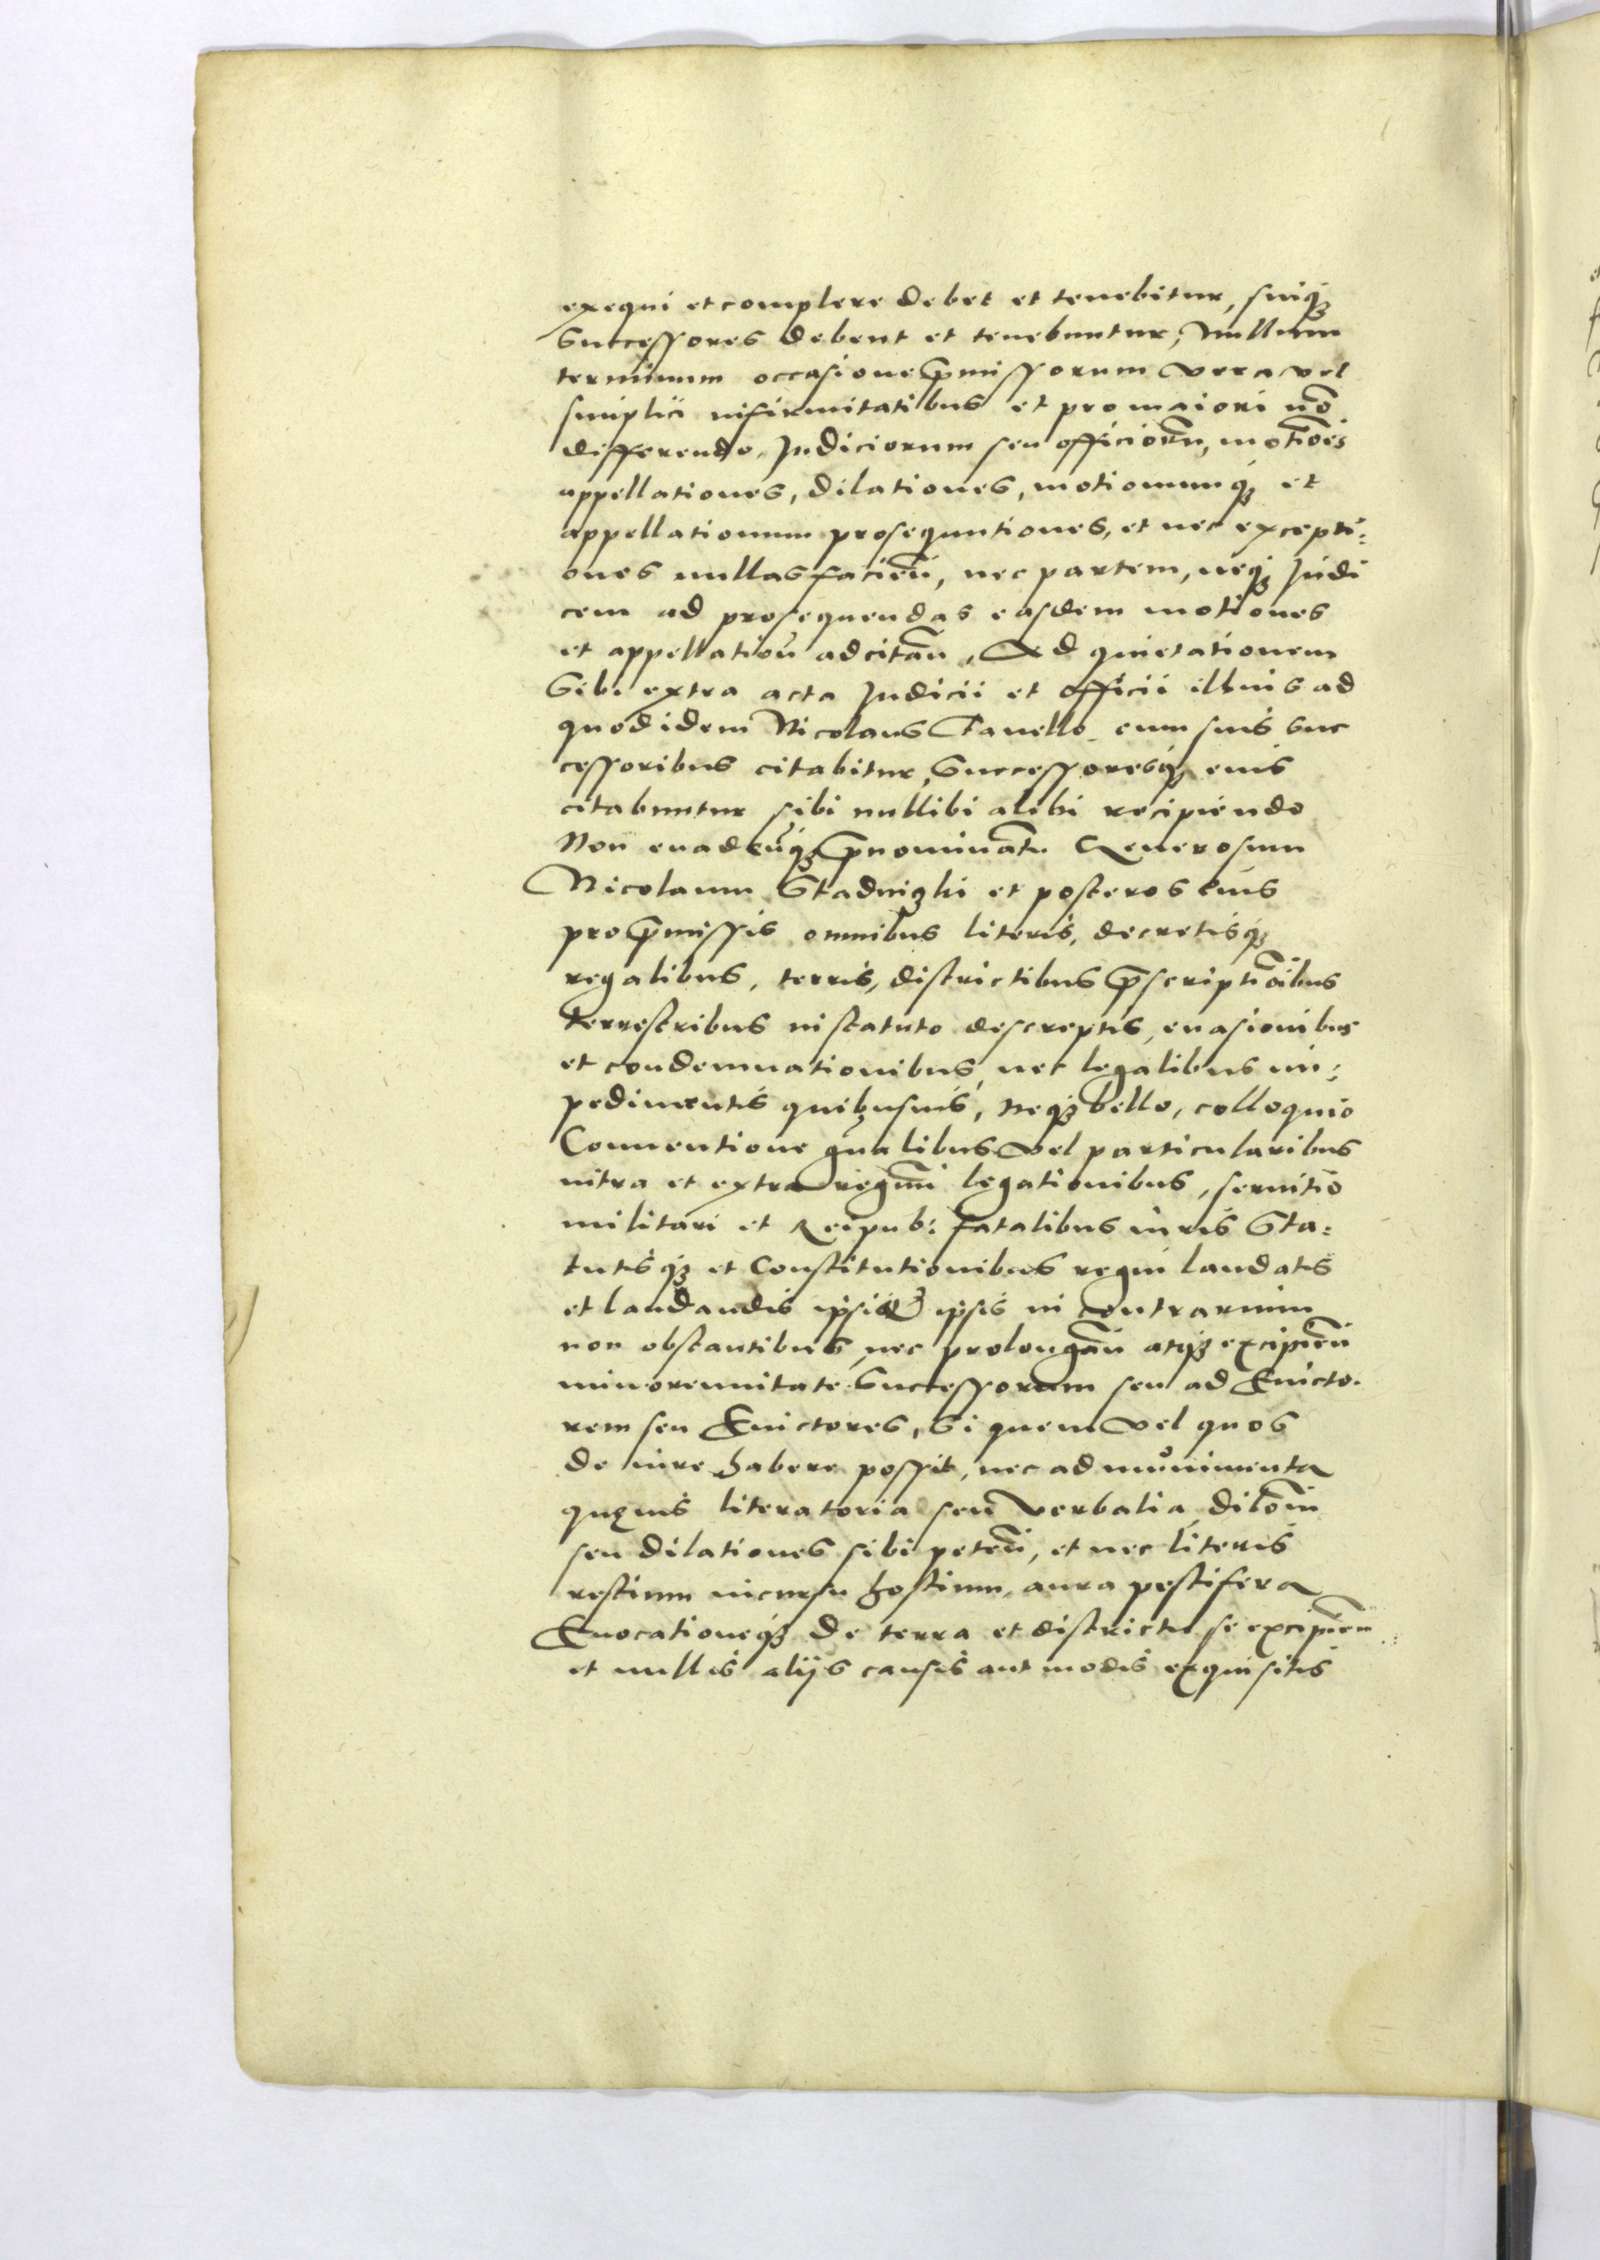 exequi et complere debet et tenebitur, suiqꝫ
Successores debent et tenebuntur, Nullum
terminum occasione p̄missorum vera vel
simplici infirmitatibus et pro maiori nō
differendo, Judiciorum seu officiorū, motiōes
appellationes, dilationes, motionumqꝫ et
appellationum prosequutiones, et nec excepti:
ones nullas facieñ, nec partem, neqꝫ Judi
cem ad prosequendas easdem motiones
et appellatioñ adcitañ, Ad quietationem
Sibi extra acta Judicii et officii illius ad
quod idem Nicolaus Tarello cum suis suc
cessoribus citabitur, Successoresqꝫ eius
citabuntur sibi nullibi alibi recipiendo
Non evadeñqꝫ p̄nominatū Generosum
Nicolaum Stadnizki et posteros eius
pro p̄missis omnibus literis, decretisqꝫ
regalibus, terris, districtibus p̄scriptiōibus
terrestribus in statuto descreptis, evasionibus
et condemnationibus, nec legalibus im:
pedimentis quibusuis, neqꝫ bello, colloquio
Conuentione gñalibus vel particularibus
intra et extra regnū legationibus, seruitio
militari et Reipub: fatalibus iuris Sta:
tutisqꝫ et Constitutionibus regni laudatis
et laudandis ipsis ipsis in contrarium
non obstantibus, nec prolongañ atqꝫ excipieñ
minorennitate Successorum seu ad Euicto.
rem seu Euictores, Si quem vel quos
de iure habere possit, nec ad munimenta
quęuis literatoria seu verbalia dilōm
seu dilationes sibi peteñ, et nec literis
restium incursu hostium, aura pestifera
Euocationeqꝫ de terra et districtu se excipieñ
et nullis aliys causis aut modis exquisitis